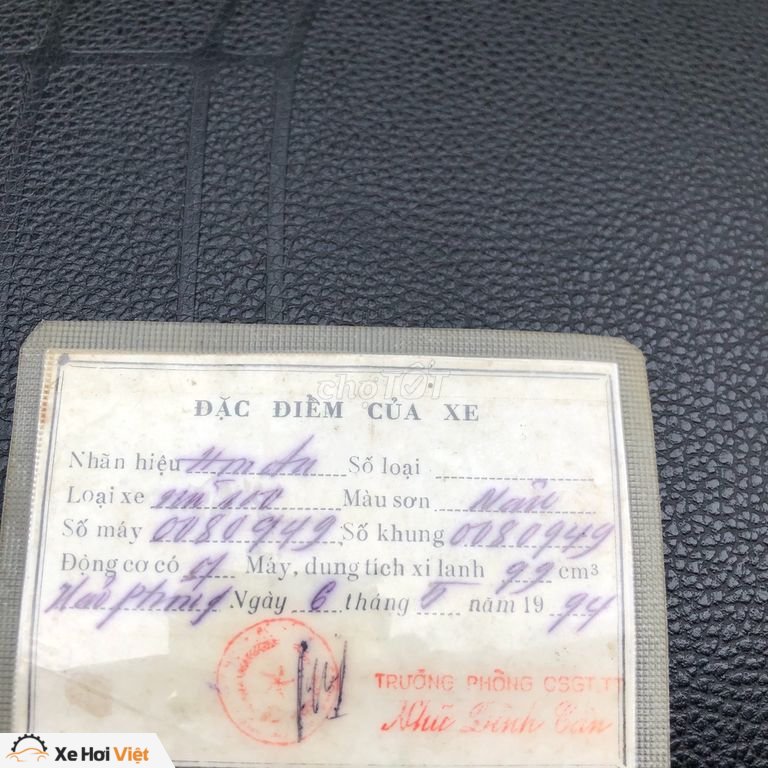 chợTỐT
ĐẶC ĐIỂM CỦA XE
Nhãn hiệu Honda Số loại
Loại xe Màu sơn Nâu
Số máy 0080949 Số khung 0080949
Động cơ có Máy, dung tích xi lanh 99 cm³
Hải Phòng Ngày 6 tháng 5 năm 19 94
TRƯỞNG PHÒNG CSGT.TT
Như Đình Văn
Xe Hơi Việt